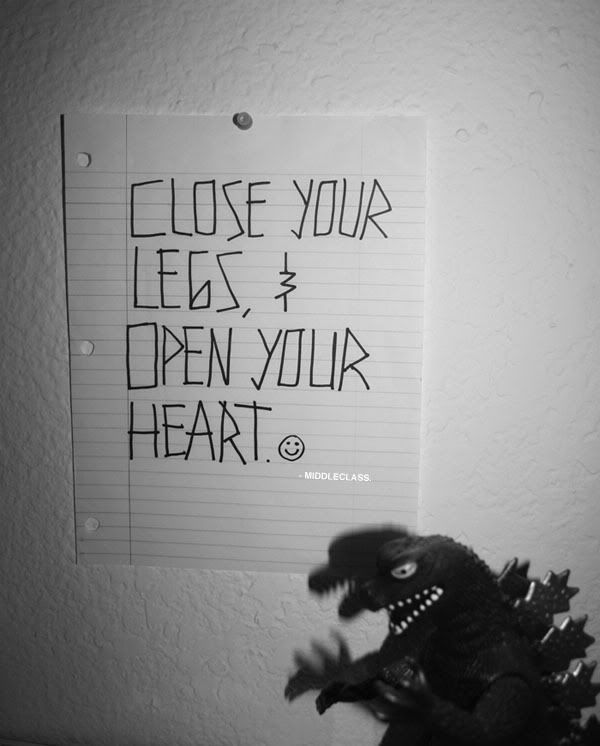 CLOSE YOUR
LEGS, &
OPEN YOUR
HEART. ☺
- MIDDLECLASS.